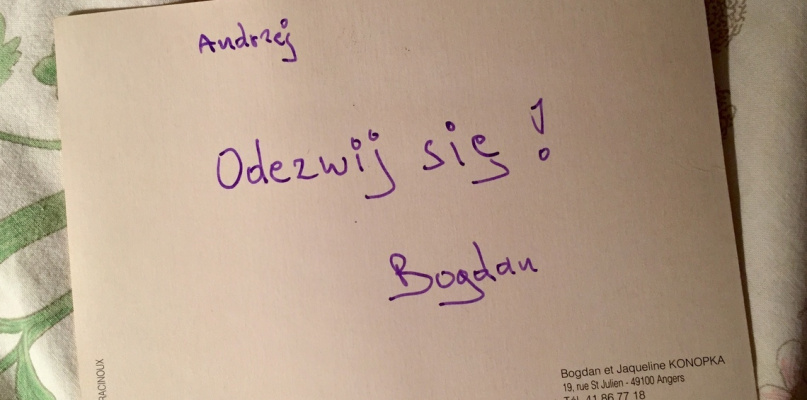 Andrzej
Odezwij się !
Bogdan
Bogdan et Jaqueline KONOPKA
19, rue St Julien - 49100 Angers
Tél. 41 86 77 18
RACINOUX